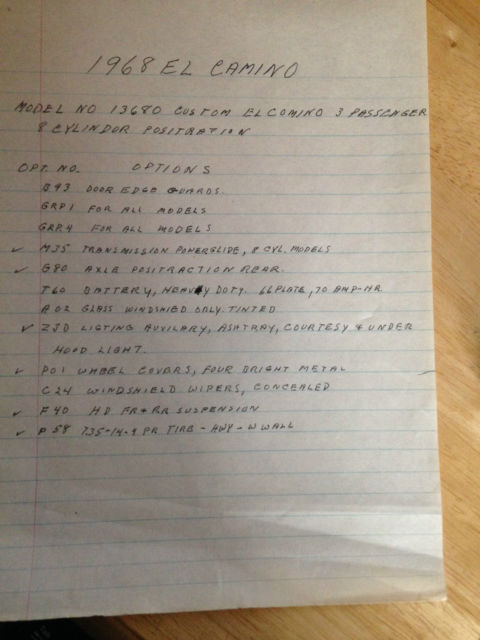 1968 EL CAMINO
MODEL NO 13680 CUSTOM ELCOMINO 3 PASSENGER
8 CYLINDOR POSITRATION
OPT. NO. OPTIONS
B93 DOOR EDGE GUARDS.
GRP1 FOR ALL MODELS
GRP.4 FOR ALL MODELS
✓ M35 TRANSMISSION POWERGLIDE, 8 CYL. MODELS
✓ G80 AXLE POSITRACTION REAR.
T60 BATTERY, HEAVY DUTY. 66 PLATE, 70 AMP-HR
A02 GLASS WINDSHIED ONLY. TINTED
✓ ZJD LIGTING AUXILARY, ASHTRAY, COURTESY & UNDER
HOOD LIGHT.
✓ PO1 WHEEL COVERS, FOUR BRIGHT METAL
C24 WINDSHIELD WIPERS, CONCEALED
✓ F40 HD FR & RR SUSPENSION
✓ P58 735-14-4 PR TIRE - HWY - W WALL